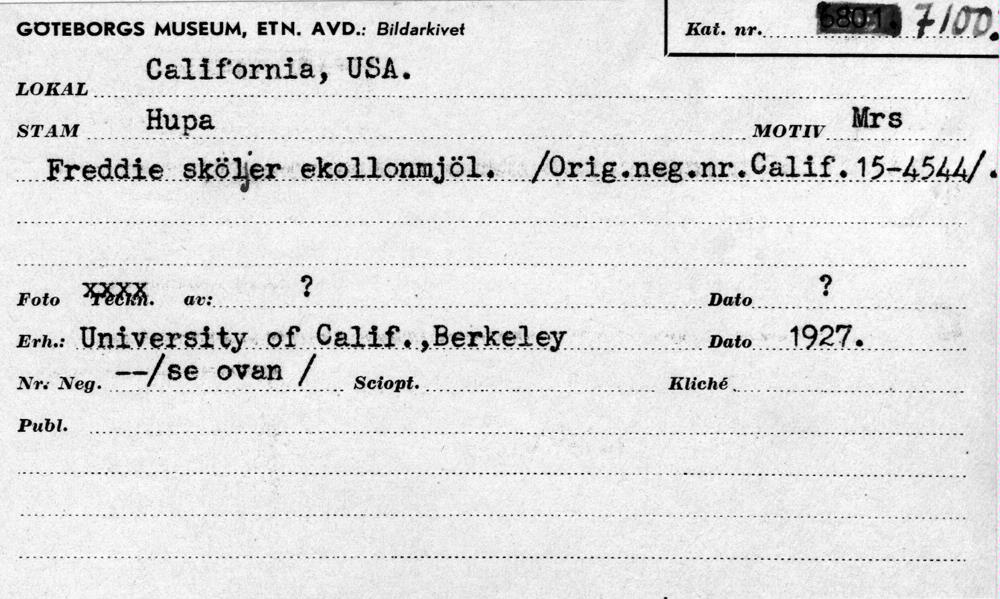 GÖTEBORGS MUSEUM, ETN. AVD.: Bildarkivet
Kat. nr. 6801. 7100.
LOKAL California, USA.
STAM Hupa MOTIV Mrs
Freddie sköljer ekollonmjöl. /Orig.neg.nr.Calif.15-4544/.
Foto Teckn. av: ? Dato ?
Erh.: University of Calif.,Berkeley Dato 1927.
Nr: Neg. --/se ovan / Sciopt. Kliché
Publ.